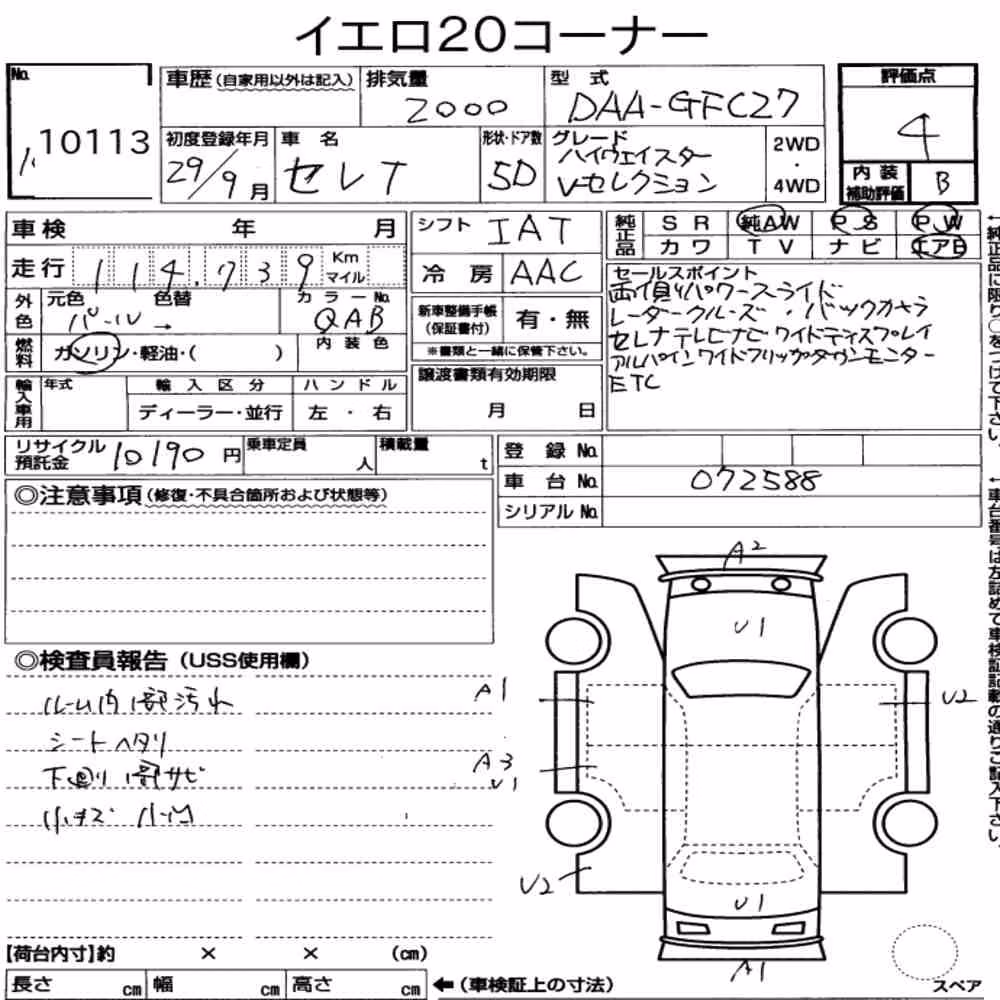 イエロ20コーナー
No.
10113
車歴(自家用以外は記入)
排気量
2000
型 式
DAA-GFC27
評価点
4
初度登録年月
29/9月
車 名
セレナ
形状・ドア数
5D
グレード
ハイウェイスター
V-セレクション
2WD
・
4WD
内 装
補助評価
B
車検 年 月
シフト
IAT
純正品
SR
純AW
PS
PW
カワ
TV
ナビ
エアB
走行
114,739
Km
マイル
冷 房
AAC
セールスポイント
両側パワースライド
レーダークルーズ・バックカメラ
セレナテレビナビワイドディスプレイ
アルパインワイドフリップダウンモニター
ETC
外色
元色
色替
パール→
カラーNo.
QAB
新車整備手帳
(保証書付)
有・無
※書類と一緒に保管下さい。
燃料
ガソリン・軽油・( )
内装色
譲渡書類有効期限
月 日
輸入車用
年式
輸入区分
ディーラー・並行
ハンドル
左・右
リサイクル
預託金
10190円
乗車定員
人
積載量
t
登 録 No.
車 台 No.
072588
シリアルNo.
◎注意事項(修復・不具合箇所および状態等)
◎検査員報告(USS使用欄)
ルーム内1部汚れ
シートヘタリ
下回り1部サビ
小キズ 小凹
A2
U1
A1
U2
A3
U1
U2
U1
A1
スペア
【荷台内寸】約 × × (cm)
長さ cm
幅 cm
高さ cm
←(車検証上の寸法)
←純正品に限り○をつけて下さい。
←車台番号は左詰めで車検証記載の通りご記入下さい。